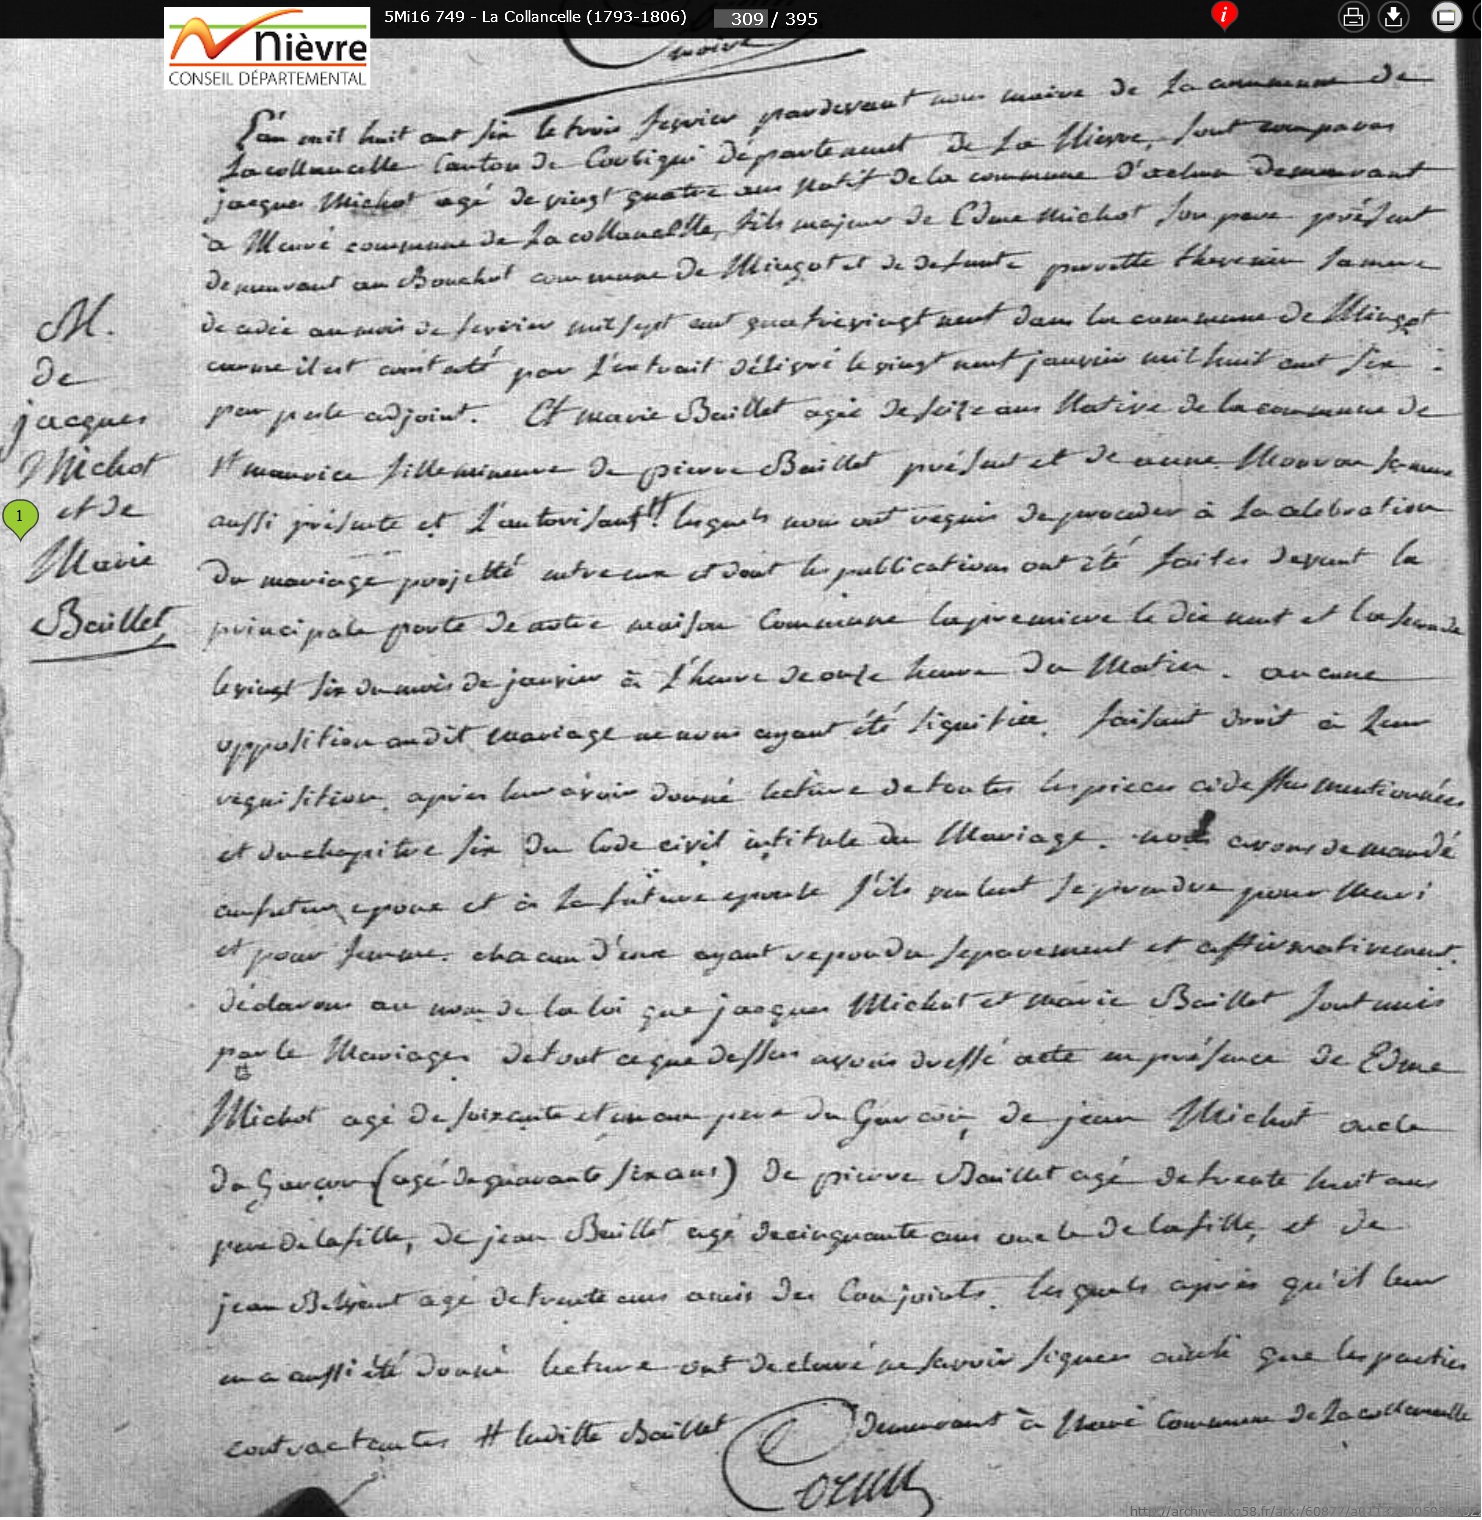 5Mi16 749 - La Collancelle (1793-1806) 309 / 395
Nièvre
CONSEIL DÉPARTEMENTAL
maire
L'an mil huit cent six le trois fevrier pardevant nous maire de La commune de
La collancelle Canton de Corbigni département de La Nievre, sont comparus
jacques Michot agé de vingt quatre ans Natif de la commune d'achun demeurant
à Marré commune de La collancelle, fils majeur de Edme Michot son pere présent
demeurant au Bouchot commune de Mingot et de defunte pierrette thevenin sa mere
decedée au mois de fevrier mil sept cent quatrevingt neuf dans la commune de Mingot
comme il est constaté par L'extrait délivré le vingt neuf janvier mil huit cent six :
par adjoint. Et marie Baillet agée de seize ans Native de la commune de
st maurice fille mineure de pierre Baillet présent et de anne sa mere
aussi présente et L'autorisant # lesquels nous ont requis de proceder à La celebration
du mariage projetté entre eux et dont les publications ont été faites devant la
principale porte de notre maison Commune la premiere le dix neuf et la seconde
le vingt six du mois de janvier à L'heure de onze heure du Matin. aucune
opposition audit mariage ne nous ayant été signifiée. faisant droit à Leur
requisition, après leur avoir donné lecture de toutes les pieces cidessus mentionnées
et du chapitre six du Code civil intitule du Mariage. nous avons demandé
au futur epoux et à La future epouse s'ils veulent se prendre pour Mari
et pour femme. chacun d'eux ayant repondu separement et affirmativement.
déclarons au nom de la loi que jacques Michot et marie Baillet sont unis
par le Mariage, de tout ce que dessus avons dressé acte en présence de Edme
Michot agé de soixante et un ans pere du Garcon, de jean Michot oncle
du Garcon (agé de quarante six ans) de pierre Baillet agé de trente huit ans
pere de la fille, de jean Baillet agé de cinquante ans oncle de la fille, et de
jean agé de trente ans amis des Conjoints. lesquels après qu'il leur
en a aussi été donné lecture ont declaré ne savoir signer ainsi que les parties
contractantes # laditte Baillet demeurant à Marré Commune de La collancelle
M.
de
jacques
Michot
et de
Marie
Baillet
1